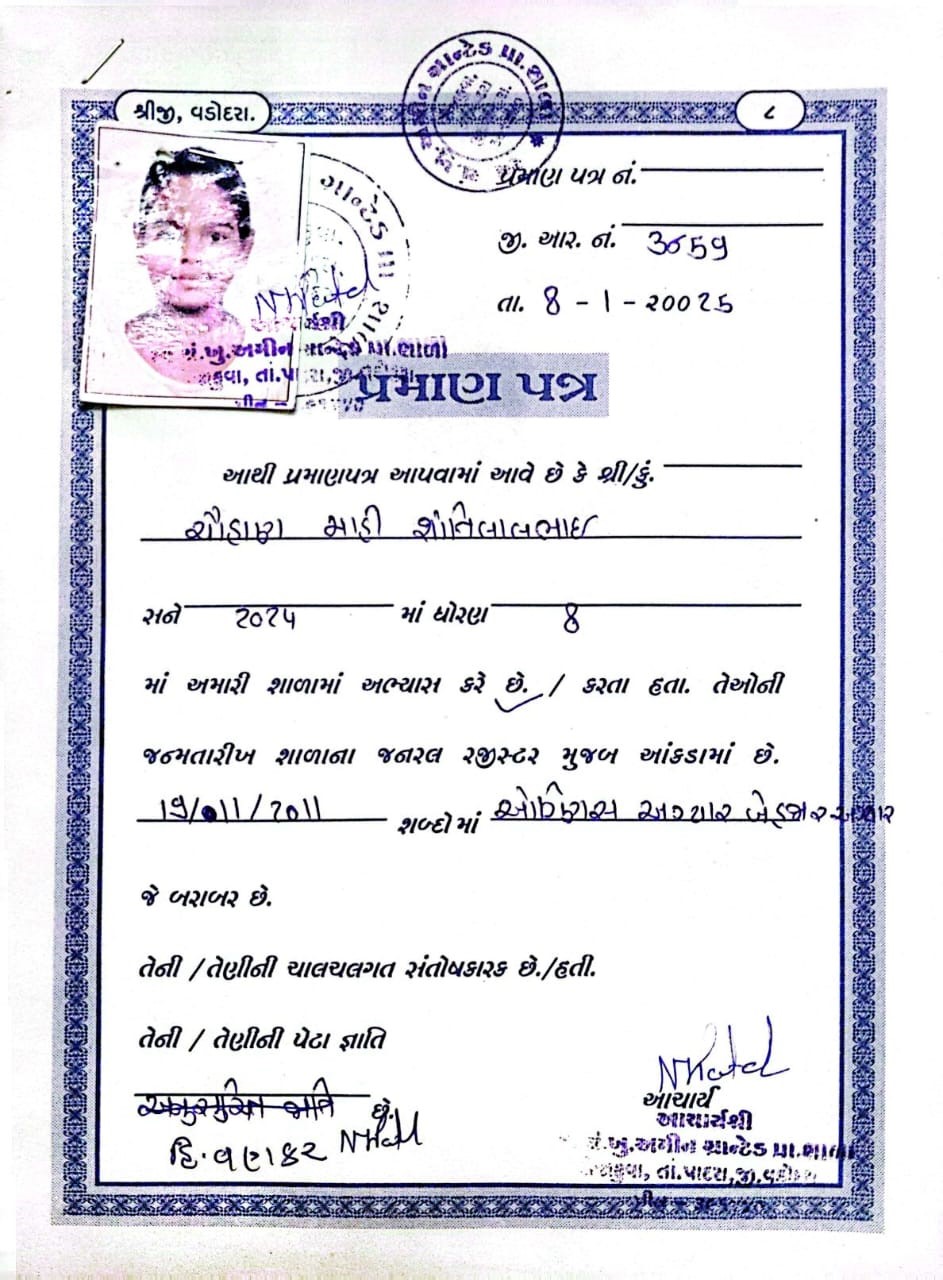 શ્રીજી, વડોદરા.
૮
પ્રમાણ પત્ર નં.
જી. આર. નં. 3૦59
તા. 8 - 1 - 20025
NKatel
આચાર્યશ્રી
મં.ખુ.અમીન ગ્રાન્ટેડ પ્રા.શાળા
તાં.પાદરા,જી.
પ્રમાણ પત્ર
આથી પ્રમાણપત્ર આપવામાં આવે છે કે શ્રી/કું.
ચૌહાણ માહી શાંતિલાલભાઇ
સને 2024 માં ધોરણ 8
માં અમારી શાળામાં અભ્યાસ કરે છે. / કરતા હતા. તેઓની
જન્મતારીખ શાળાના જનરલ રજીસ્ટર મુજબ આંકડામાં છે.
19/011/2011 શબ્દોમાં ઓગણિસ અગ્યાર બેહજાર અગ્યાર
જે બરાબર છે.
તેની /તેણીની ચાલચલગત સંતોષકારક છે./હતી.
તેની / તેણીની પેટા જ્ઞાતિ
અનુસુચિત જાતિ છે.
હિ.વણકર
આચાર્ય
આચાર્યશ્રી
મં.ખુ.અમીન ગ્રાન્ટેડ પ્રા.શાળા
તાં.પાદરા,જી.વડોદરા